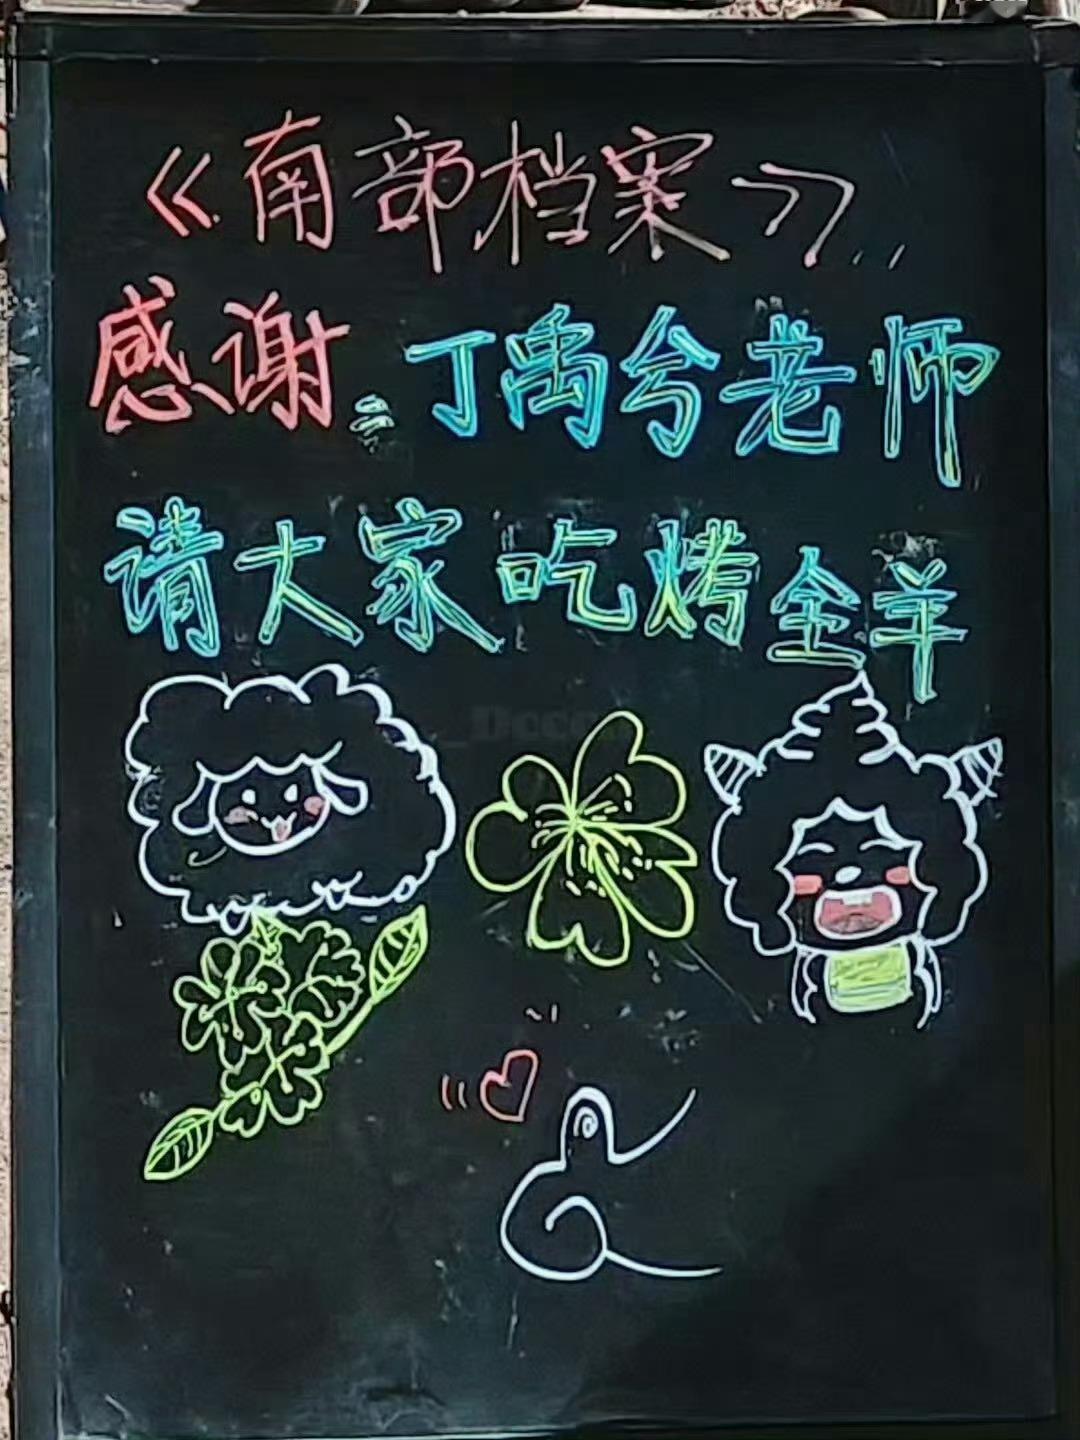 《南部档案》
感谢:丁禹兮老师
请大家吃烤全羊